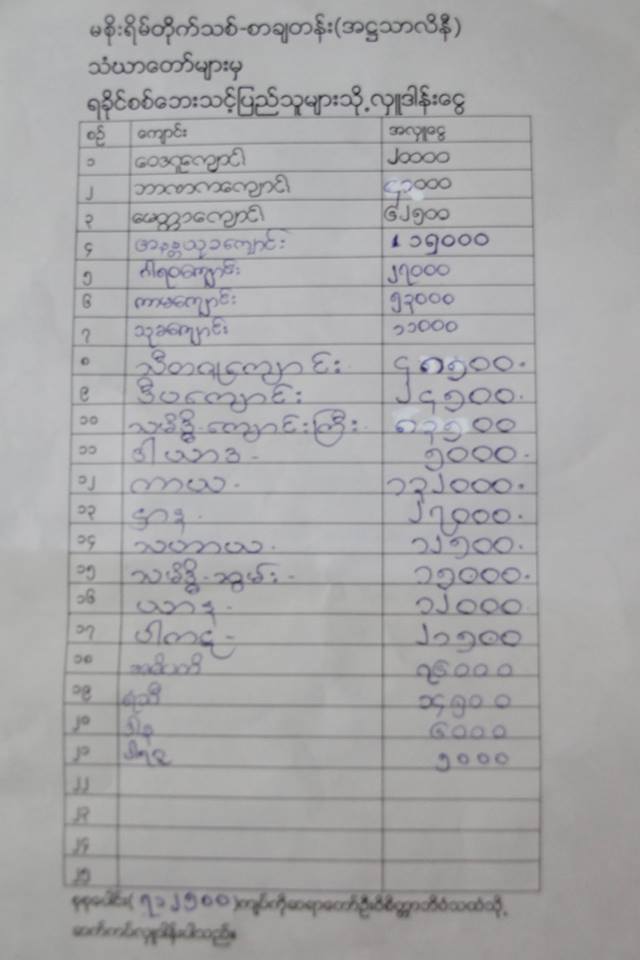 မစိုးရိမ်တိုက်သစ်-စာချတန်း(အဋ္ဌသာလိနီ)
သံဃာတော်များမှ
ရခိုင်စစ်ဘေးသင့်ပြည်သူများသို့လှူဒါန်းငွေ
စဉ် ကျောင်း အလှူငွေ
၁ ဝေဒဂူကျောင်း ၂၁၁၀၀
၂ ဘာဏကကျောင်း ၄၁၀၀၀
၃ မေတ္တာကျောင်း ၆၂၅၀၀
၄ အာနန္ဒယုခကျောင်း ၁၁၅၀၀၀
၅ ဂါရဝကျောင်း ၂၇၀၀၀
၆ ကာမကျောင်း ၅၃၀၀၀
၇ သုခကျောင်း ၁၁၀၀၀
၈ ကျောင်း ၄၈၅၀၀.
၉ ဒီပကျောင်း ၂၄၅၀၀.
၁၀ သမိဒ္ဓိ-ကျောင်းကြီး ၈၃၅၀၀
၁၁ ဒါယာဒ - ၅၀၀၀.
၁၂ ကာယ - ၁၃၂၀၀၀.
၁၃ ဌာန - ၂၇၀၀၀.
၁၄ သဟာယ - ၁၂၅၀၀.
၁၅ သမိဒ္ဓိ-ဆွမ်း - ၁၅၀၀၀.
၁၆ ယာန - ၁၂၀၀၀
၁၇ ပါကဋ - ၂၁၅၀၀
၁၈ အဓိပတိ ၇၆၀၀၀
၁၉ ရံသီ ၁၄၅၀၀
၂၀ ဒါန ၆၀၀၀
၂၁ ၅၀၀၀
၂၂
၂၃
၂၄
၂၅
စုစုပေါင်း( ၇၁၂၅၀၀ )ကျပ်ကိုဆရာတော်ဦးဝိစိတ္တာဘိဝံသထံသို့
ဆက်ကပ်လှူဒါန်းပါသည်။